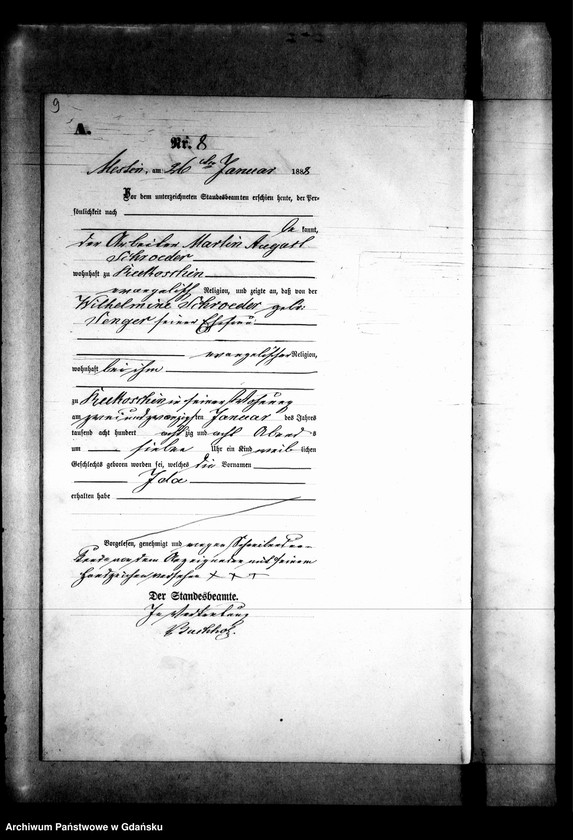 9
A.
Nr. 8
Mestin, am 26ten Januar 1888
Vor dem unterzeichneten Standesbeamten erschien heute, der Per-
sönlichkeit nach
be kannt,
der Arbeiter Martin August
Schroeder
wohnhaft zu Kukoschin
evangelisch Religion, und zeigte an, daß von der
Wilhelmine Schroeder geb.
Senger seiner Ehefrau
evangelischer Religion,
wohnhaft bei ihm
zu Kukoschin in seiner Wohnung
am zweiundzwanzigsten Januar des Jahres
tausend acht hundert achtzig und acht Abends
um sieben Uhr ein Kind weiblichen
Geschlechts geboren worden sei, welches die Vornamen
Ida
erhalten habe
Vorgelesen, genehmigt und wegen Schreibensun-
kunde von dem Anzeigenden mit seinem
Handzeichen versehen + + +
Der Standesbeamte.
In Vertretung
Archiwum Państwowe w Gdańsku